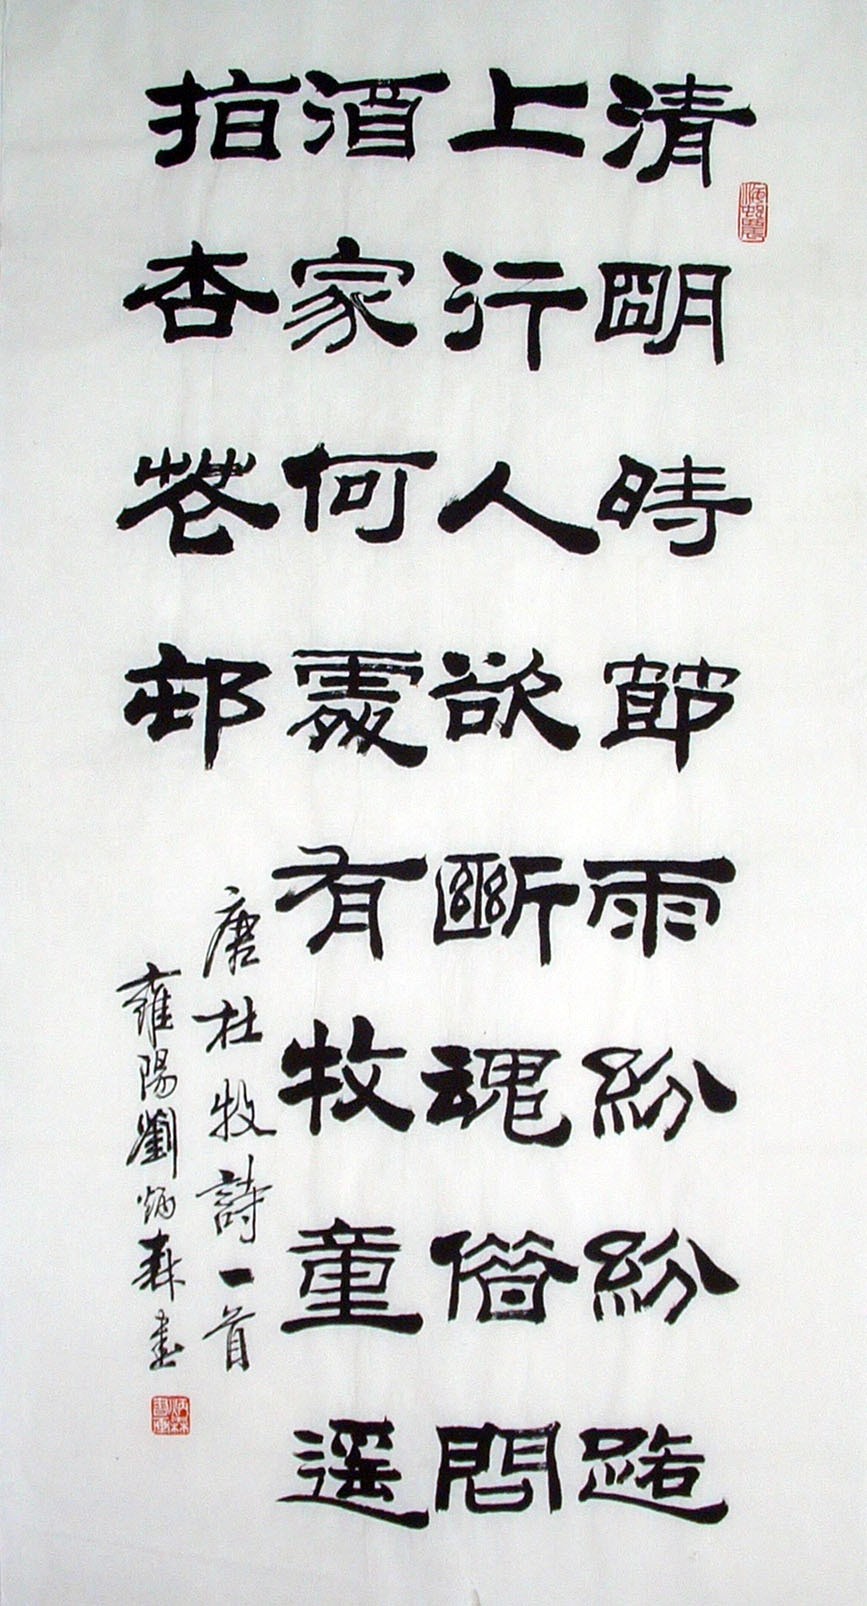 清朙時節雨紛紛路
上行人欲斷魂借問
酒家何處有牧童遥
指杏花邨
唐杜牧詩一首
雍陽劉炳森書